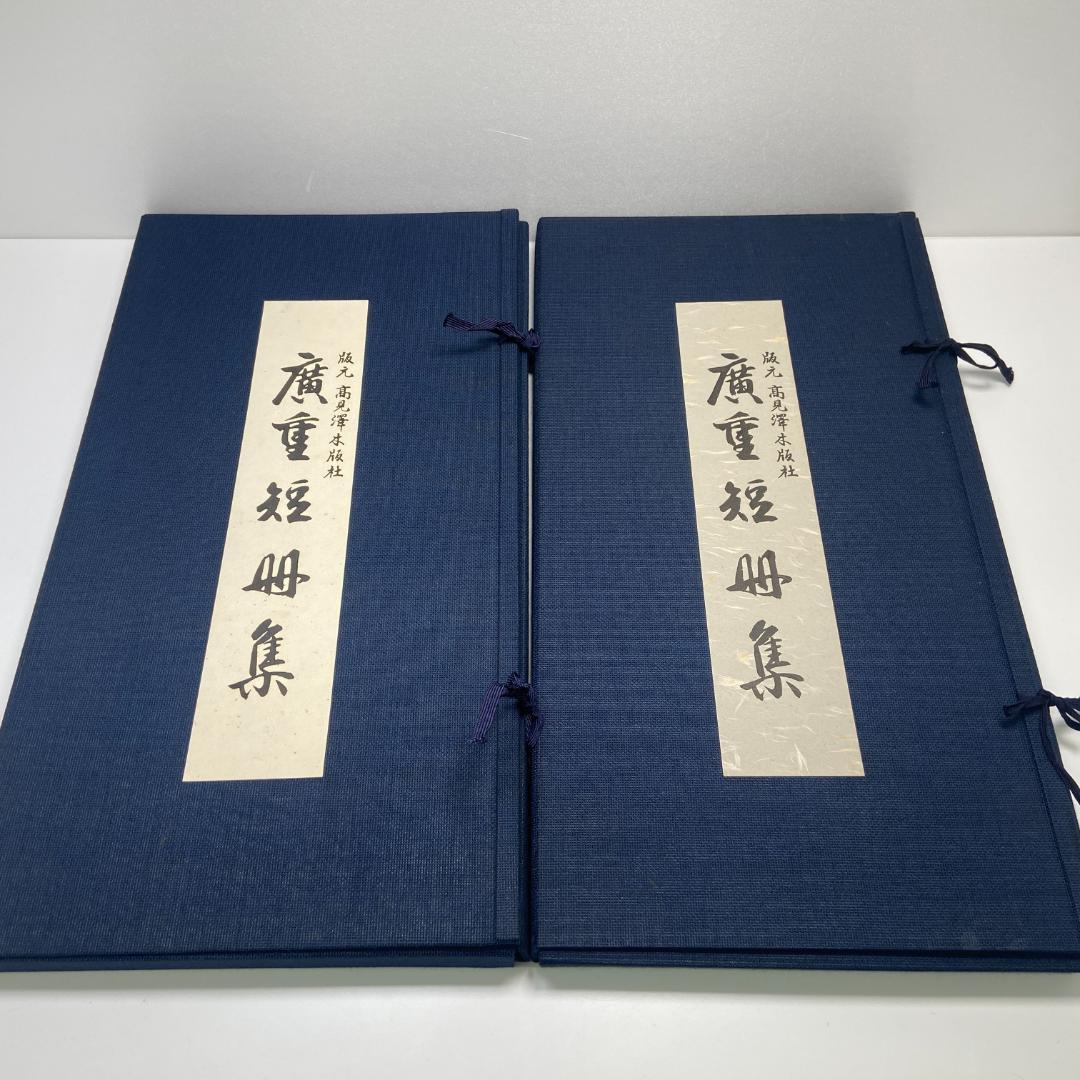 版元 高見澤木版社
廣重短冊集
版元 高見澤木版社
廣重短冊集